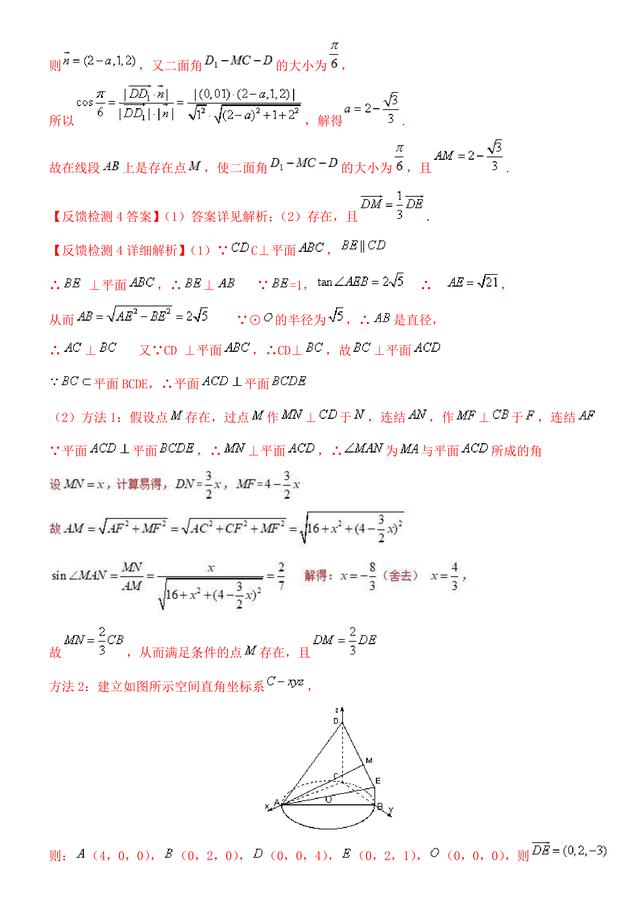 则 n⃗=(2−a,1,2)，又二面角 D₁−MC−D 的大小为 π/6，
所以 cos π/6 = |DD₁⃗·n⃗| / |DD₁⃗|·|n⃗| = |(0,01)·(2−a,1,2)| / √1²·√((2−a)²+1+2²)，解得 a=2−√3/3．
故在线段 AB 上是存在点 M，使二面角 D₁−MC−D 的大小为 π/6，且 AM=2−√3/3．
【反馈检测 4 答案】（1）答案详见解析；（2）存在，且 DM⃗=1/3 DE⃗．
【反馈检测 4 详细解析】（1）∵ CD C⊥平面 ABC，BE∥CD
∴ BE ⊥平面 ABC，∴ BE⊥AB ∵ BE=1，tan∠AEB=2√5 ∴ AE=√21，
从而 AB=√(AE²−BE²)=2√5 ∵⊙O 的半径为 √5，∴ AB 是直径，
∴ AC ⊥ BC 又∵CD ⊥平面 ABC，∴CD⊥BC，故 BC⊥平面 ACD
∵ BC⊂平面 BCDE，∴平面 ACD⊥平面 BCDE
（2）方法 1：假设点 M 存在，过点 M 作 MN⊥CD 于 N，连结 AN，作 MF⊥CB 于 F，连结 AF
∵平面 ACD⊥平面 BCDE，∴MN⊥平面 ACD，∴∠MAN 为 MA 与平面 ACD 所成的角
设 MN=x，计算易得，DN=3/2 x，MF=4−3/2 x
故 AM=√(AF²+MF²)=√(AC²+CF²+MF²)=√(16+x²+(4−3/2 x)²)
sin∠MAN=MN/AM=x/√(16+x²+(4−3/2 x)²)=2/7 解得：x=−8/3（舍去） x=4/3，
故 MN=2/3 CB，从而满足条件的点 M 存在，且 DM=2/3 DE
方法 2：建立如图所示空间直角坐标系 C−xyz，
z
D
M
C
E
A
O
B
x
y
则：A（4，0，0），B（0，2，0），D（0，0，4），E（0，2，1），O（0，0，0），则 DE⃗=(0,2,−3)